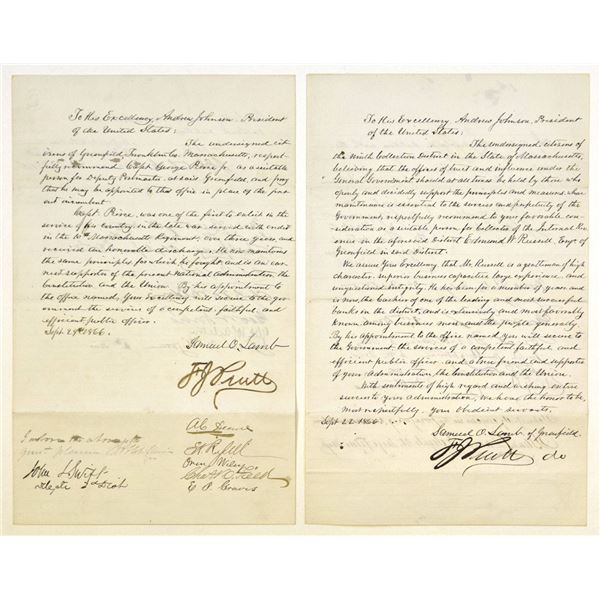 To His Excellency, Andrew Johnson, President
of the United States:
The undersigned cit-
izens of Greenfield, Franklin Co. Massachusetts, respect-
fully recommend Capt. George Pierce Jr. as a suitable
person for Deputy Postmaster at said Greenfield, and pray
that he may be appointed to that office in place of the pres-
ent incumbent.
Capt. Pierce, was one of the first to enlist in the
service of his country in the late war, served with credit
in the 10th Massachusetts Regiment, over three years, and
received an honorable discharge. He now maintains
the same principles for which he fought, and is an ear-
nest supporter of the present National Administration, the
Constitution and the Union. By his appointment to
the office named, Your Excellency will secure to the gov-
ernment the services of a competent, faithful, and
efficient public officer.
Sept. 29th 1866.
Samuel O. Lamb
F J Pratt
John S Swift
Delegate
E. P. Graves
To His Excellency, Andrew Johnson, President
of the United States:
The undersigned citizens of
the Ninth Collection District in the State of Massachusetts,
believing that the offices of trust and influence under the
General Government should at all times be held by those who
openly and decidedly support the principles and measures, whose
maintenance is essential to the success and perpetuity of the
Government, respectfully recommend to your favorable con-
sideration as a suitable person for Collector of the Internal Rev-
enue in the aforesaid District, Edmund W. Russell, Esqr. of
Greenfield in said District.
We assure Your Excellency, that Mr. Russell is a gentleman of high
character, superior business capacities, large experience, and
unquestioned integrity. He has been for a number of years, and
is now, the Cashier of one of the leading and most successful
banks in the district, and is extensively and most favorably
known among business men and the people generally.
By his appointment to the office named you will secure to
the Government, the services of a competent, faithful, and
efficient public officer, and a true friend and supporter
of your administration, the Constitution and the Union.
With sentiments of high regard and wishing entire
success to your Administration, We have the honor to be,
most respectfully, your obedient servants.
Sept 22 1866
Samuel O. Lamb of Greenfield.
F J Pratt do